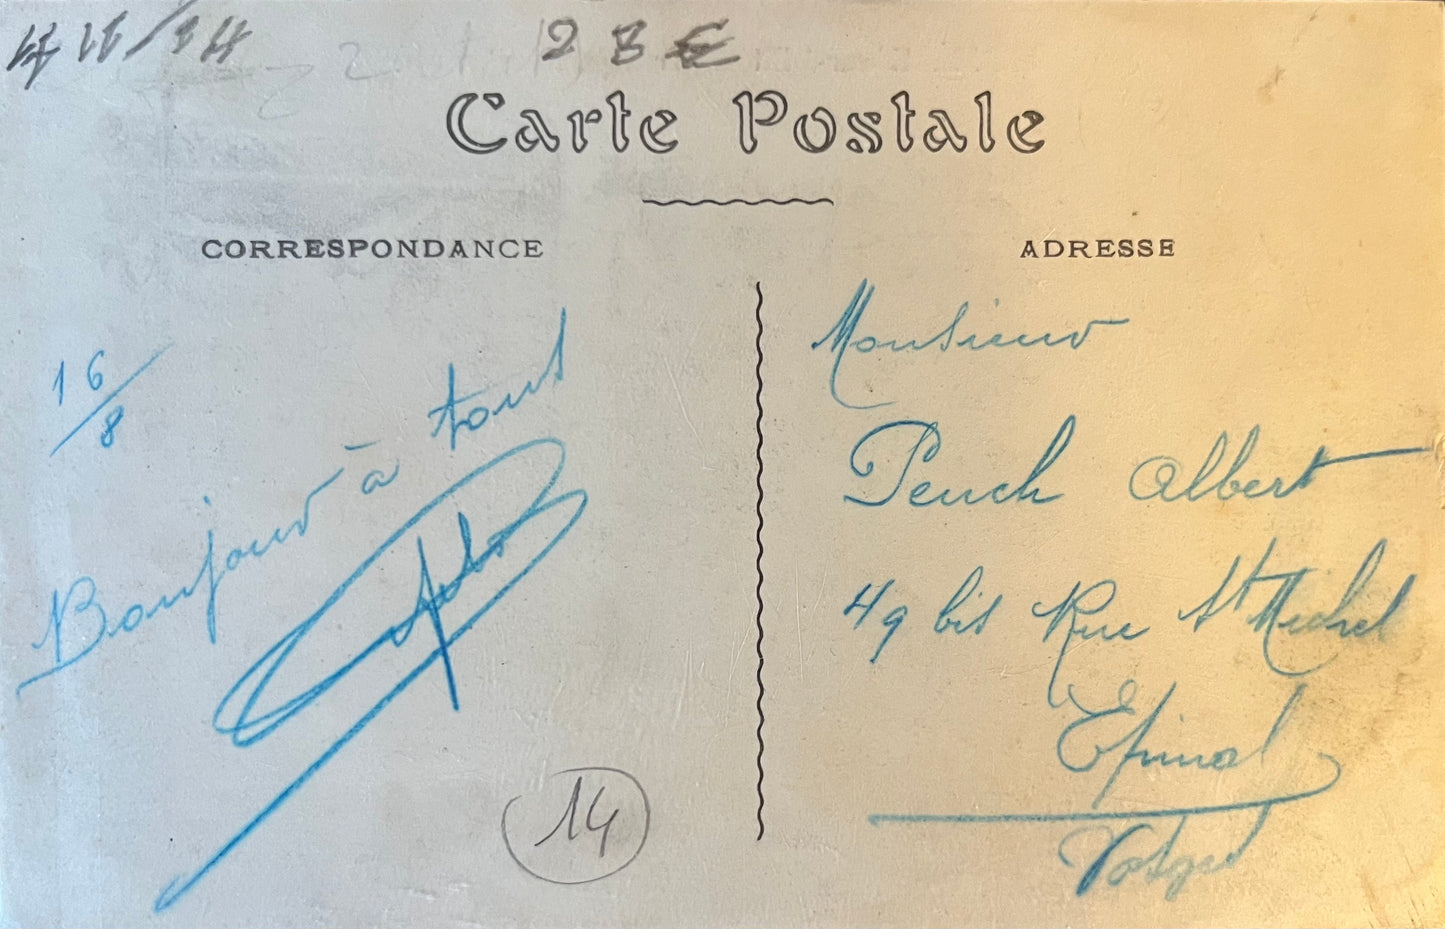 28€
Carte Postale
CORRESPONDANCE
ADRESSE
16/8
Bonjour à tous
14
Monsieur
Peuch Albert
49 bis Rue St Michel
Epinal
Vosges